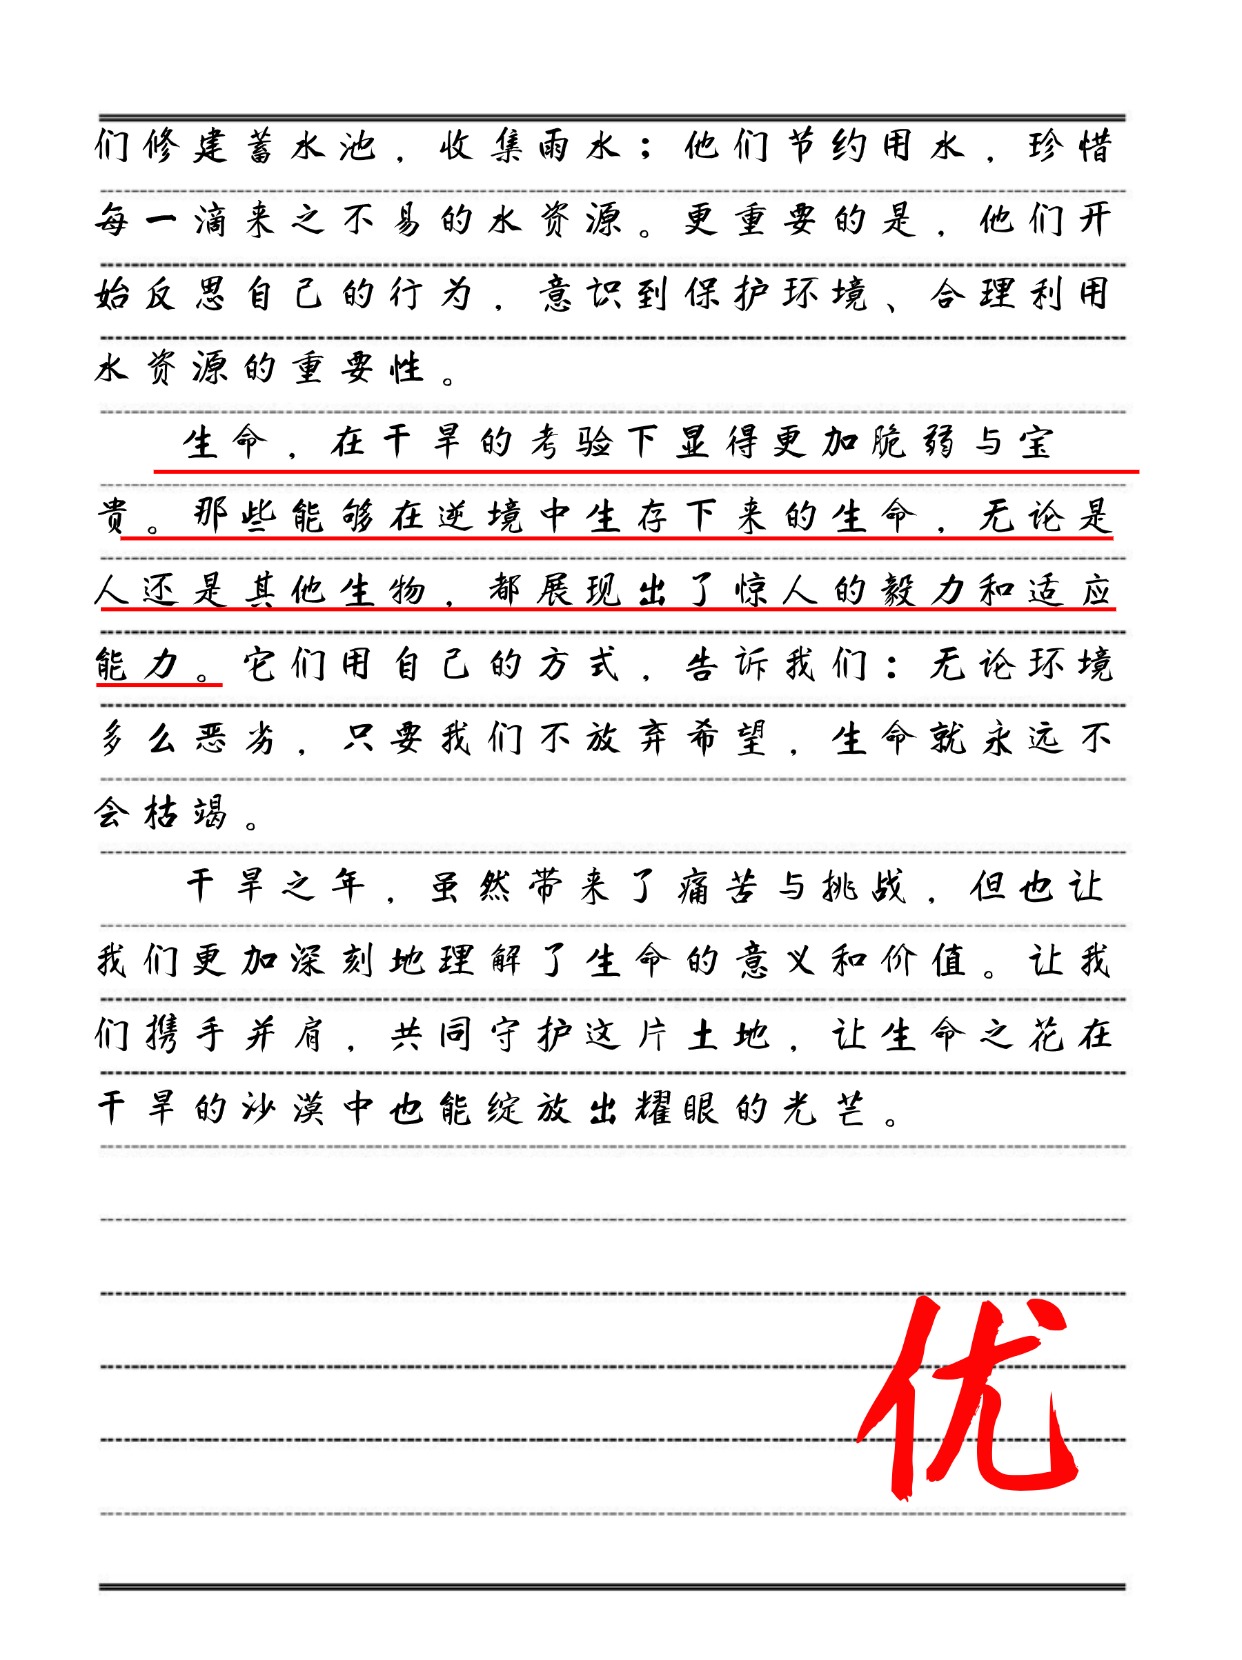 们修建蓄水池，收集雨水；他们节约用水，珍惜
每一滴来之不易的水资源。更重要的是，他们开
始反思自己的行为，意识到保护环境、合理利用
水资源的重要性。
生命，在干旱的考验下显得更加脆弱与宝
贵。那些能够在逆境中生存下来的生命，无论是
人还是其他生物，都展现出了惊人的毅力和适应
能力。它们用自己的方式，告诉我们：无论环境
多么恶劣，只要我们不放弃希望，生命就永远不
会枯竭。
干旱之年，虽然带来了痛苦与挑战，但也让
我们更加深刻地理解了生命的意义和价值。让我
们携手并肩，共同守护这片土地，让生命之花在
干旱的沙漠中也能绽放出耀眼的光芒。
优